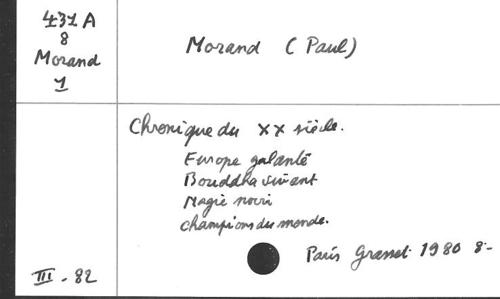 431 A
8
Morand
1
Morand (Paul)
Chronique du XX siècle.
Europe galante
Bouddha vivant
Magie noire
champions du monde.
Paris Grasset 1980 8-
III - 82